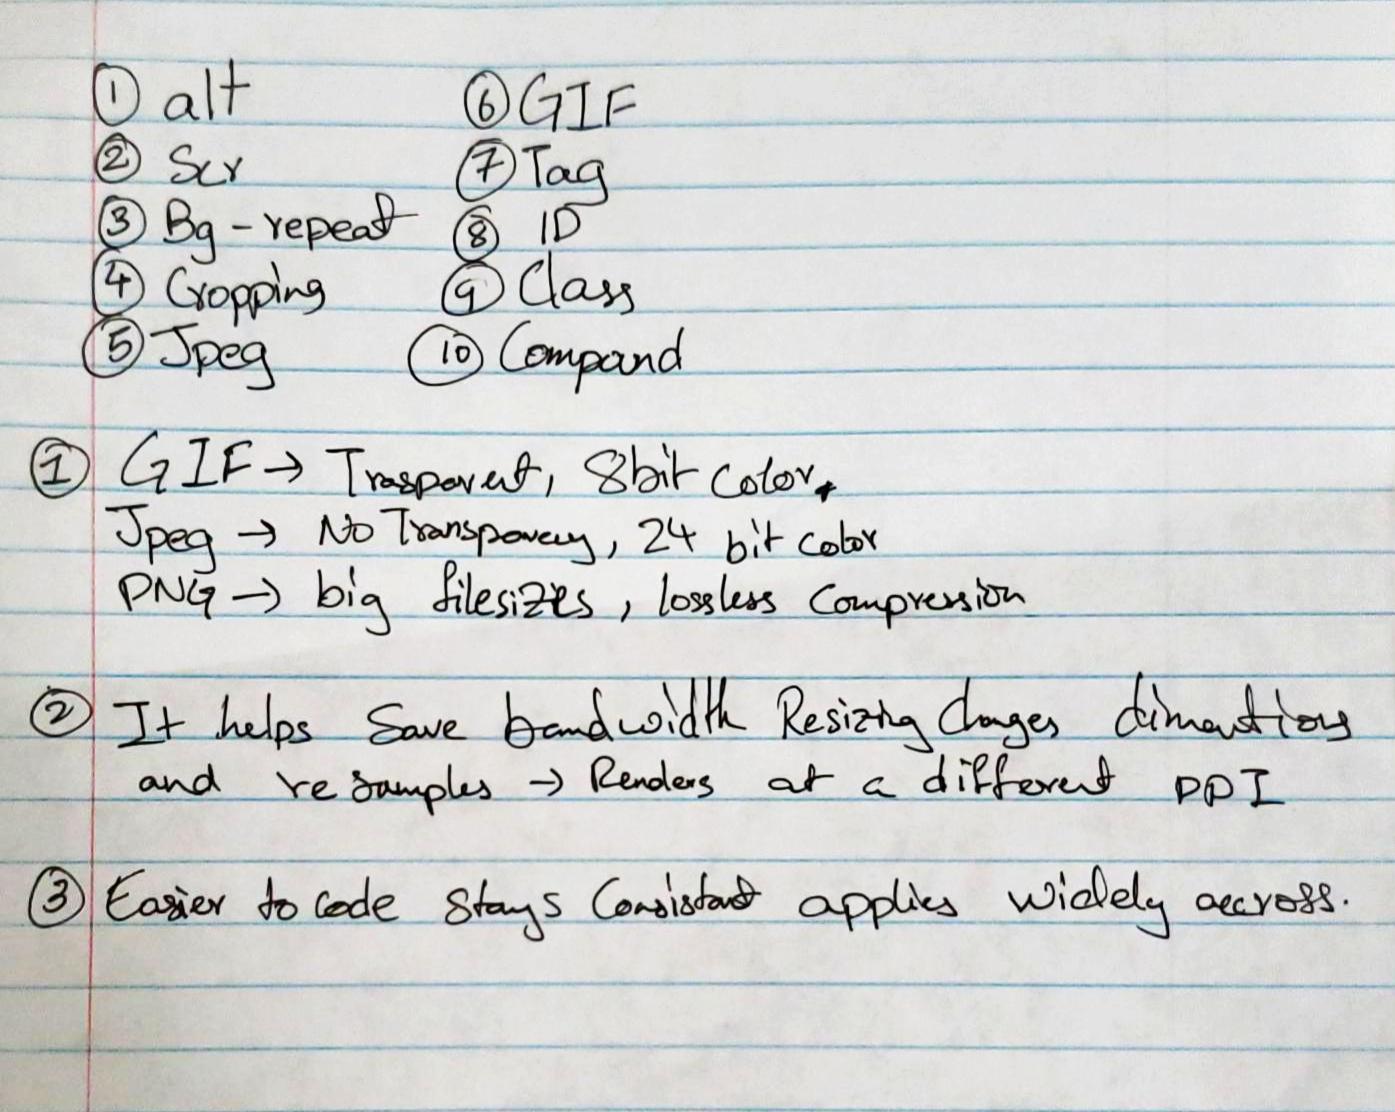 ① alt ⑥ GIF
② Scr ⑦ Tag
③ Bg - repeat ⑧ ID
④ Cropping ⑨ Class
⑤ Jpeg ⑩ Compand
① GIF → Trasparent, 8bit Color
Jpeg → No Transparency, 24 bit color
PNG → big filesizes, lossless Compression
② It helps Save bandwidth Resizing Changes dimentions
and resamples → Renders at a different PPI
③ Easier to code stays Consistant applies widely accross.